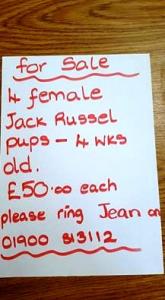 for Sale
4 female
Jack Russel
pups - 4 wks
old.
£50.00 each
please ring Jean on
01900 813112